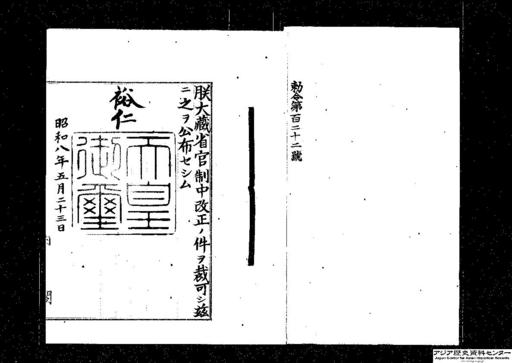 勅令第百二十二號
朕大藏省官制中改正ノ件ヲ裁可シ茲
ニ之ヲ公布セシム
裕仁
天皇
御璽
昭和八年五月二十三日
内閣
アジア歴史資料センター
Japan Center for Asian Historical Records